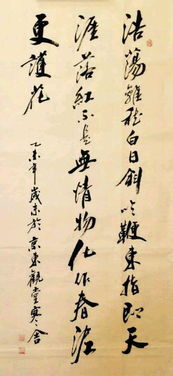 浩蕩離愁白日斜吟鞭東指即天
涯落紅不是無情物化作春泥
更護花
乙未年歲末於京東觀堂寒舍